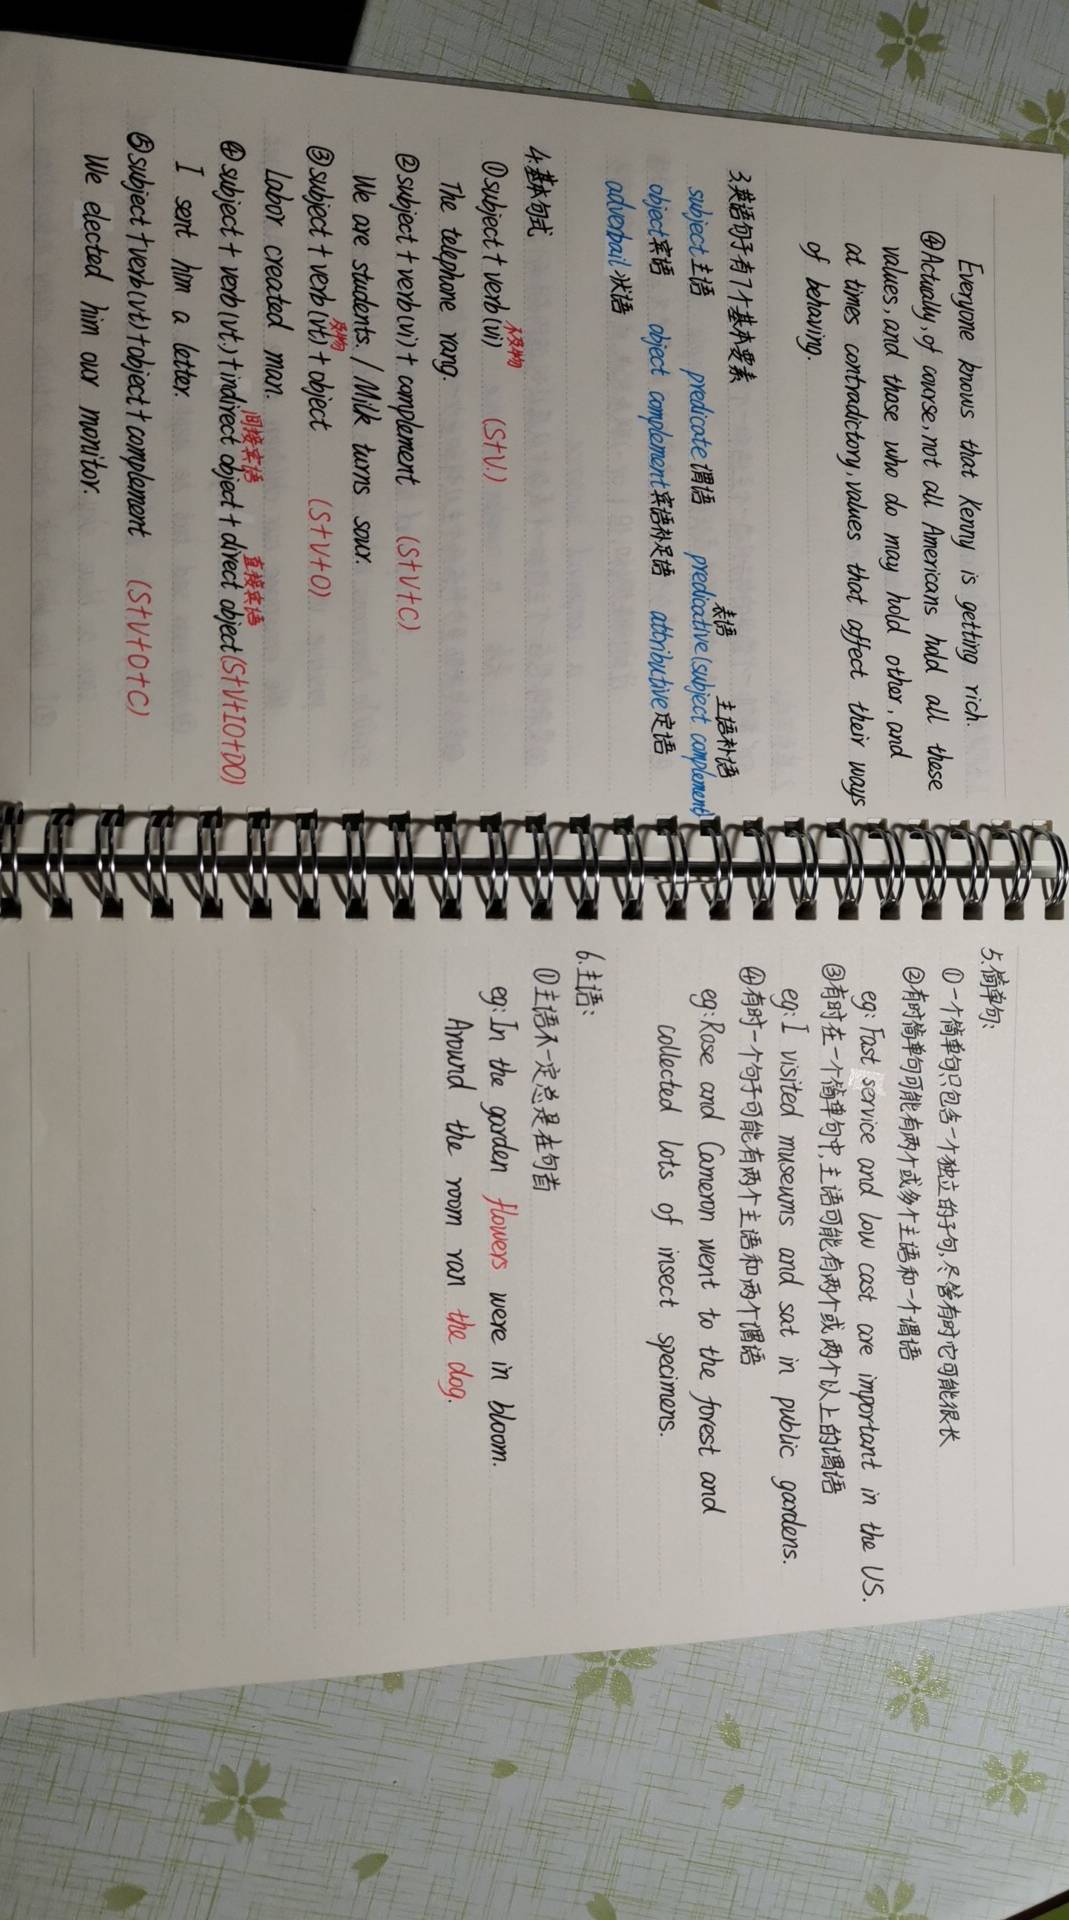 Everyone knows that Kenny is getting rich.
④Actually, of course, not all Americans hold all these
values, and those who do may hold other, and
at times contradictory, values that affect their ways
of behaving.
3.英语句子有7个基本要素
表语 主语补语
subject主语 predicate谓语 predicative(subject complement)
object宾语 object complement宾语补足语 attributive定语
adverbail状语
4.基本句式
不及物
①subject+verb(vi) (S+V.)
The telephone rang.
②subject+verb(vi)+complement (S+V+C)
We are students. / Milk turns sour.
及物
③subject+verb(vt)+object (S+V+O)
Labor created man.
间接宾语 直接宾语
④subject+verb(vt.)+indirect object+direct object(S+V+IO+DO)
I sent him a letter.
⑤subject+verb(vt)+object+complement (S+V+O+C)
We elected him our monitor.
5.简单句:
①一个简单句只包含一个独立的子句,尽管有时它可能很长
②有时简单句可能有两个或多个主语和一个谓语
eg: Fast service and low cost are important in the US.
③有时在一个简单句中,主语可能有两个或两个以上的谓语
eg: I visited museums and sat in public gardens.
④有时一个句子可能有两个主语和两个谓语
eg: Rose and Cameron went to the forest and
collected lots of insect specimens.
6.主语:
①主语不一定总是在句首
eg: In the garden flowers were in bloom.
Around the room ran the dog.